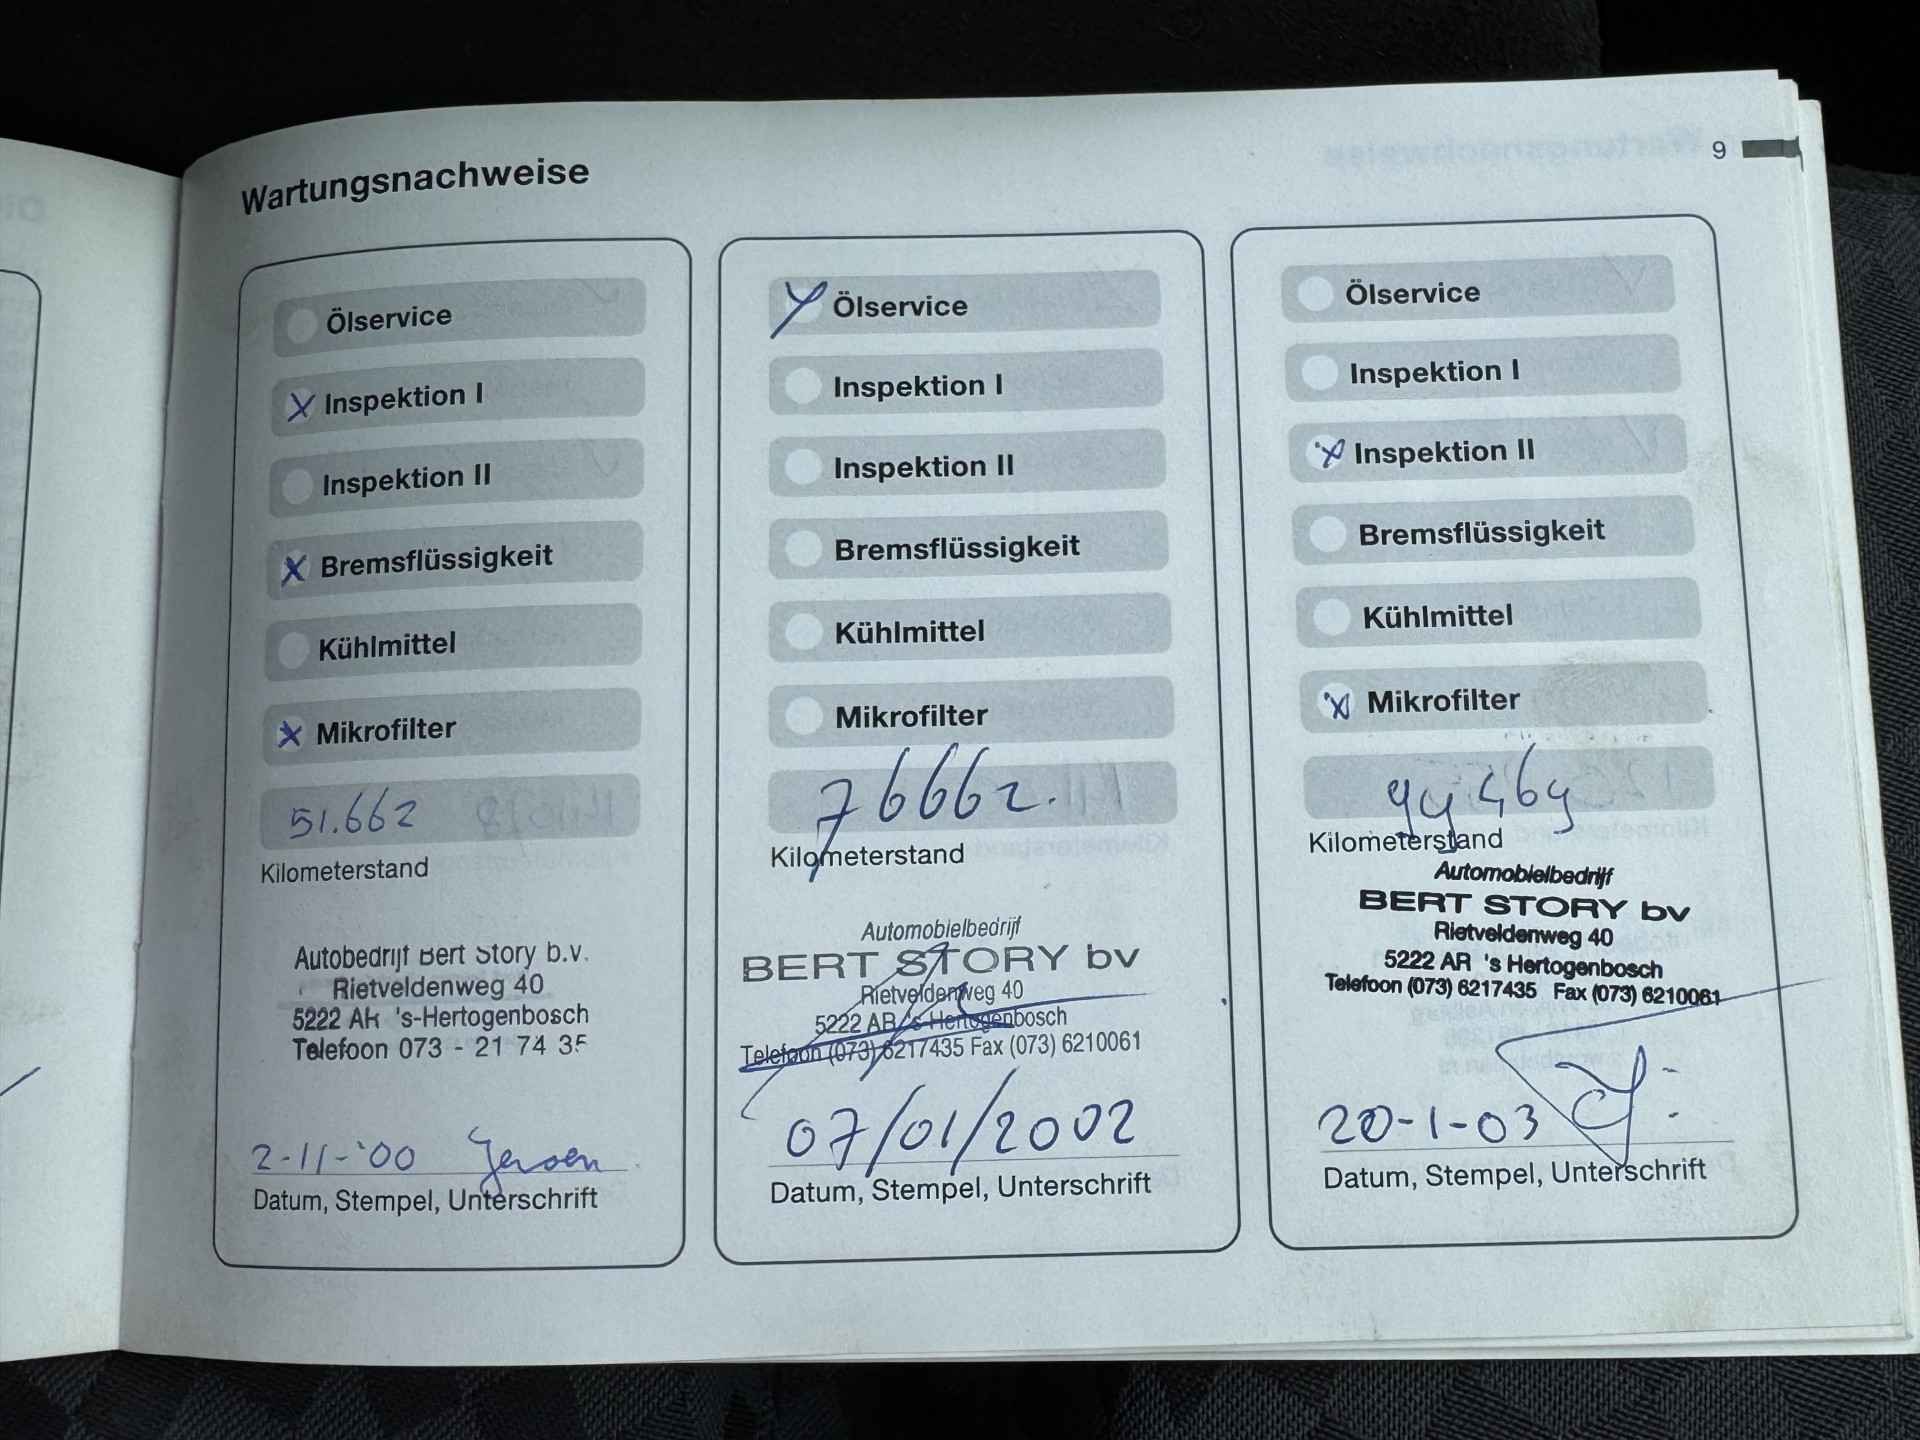 Wartungsnachweise
9
Ölservice
X Inspektion I
Inspektion II
X Bremsflüssigkeit
Kühlmittel
X Mikrofilter
51.662
Kilometerstand
Autobedrijf Bert Story b.v.
Rietveldenweg 40
5222 AR 's-Hertogenbosch
Telefoon 073 - 21 74 35
2-11-'00 Jeroen
Datum, Stempel, Unterschrift
X Ölservice
Inspektion I
Inspektion II
Bremsflüssigkeit
Kühlmittel
Mikrofilter
76662.
Kilometerstand
Automobielbedrijf
BERT STORY bv
Rietveldenweg 40
5222 AR 's Hertogenbosch
Telefoon (073) 6217435 Fax (073) 6210061
07/01/2002
Datum, Stempel, Unterschrift
Ölservice
Inspektion I
X Inspektion II
Bremsflüssigkeit
Kühlmittel
X Mikrofilter
99469
Kilometerstand
Automobielbedrijf
BERT STORY bv
Rietveldenweg 40
5222 AR 's Hertogenbosch
Telefoon (073) 6217435 Fax (073) 6210061
20-1-03
Datum, Stempel, Unterschrift